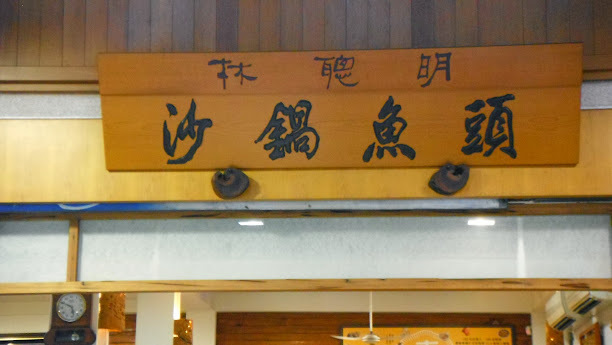 林聰明
沙鍋魚頭